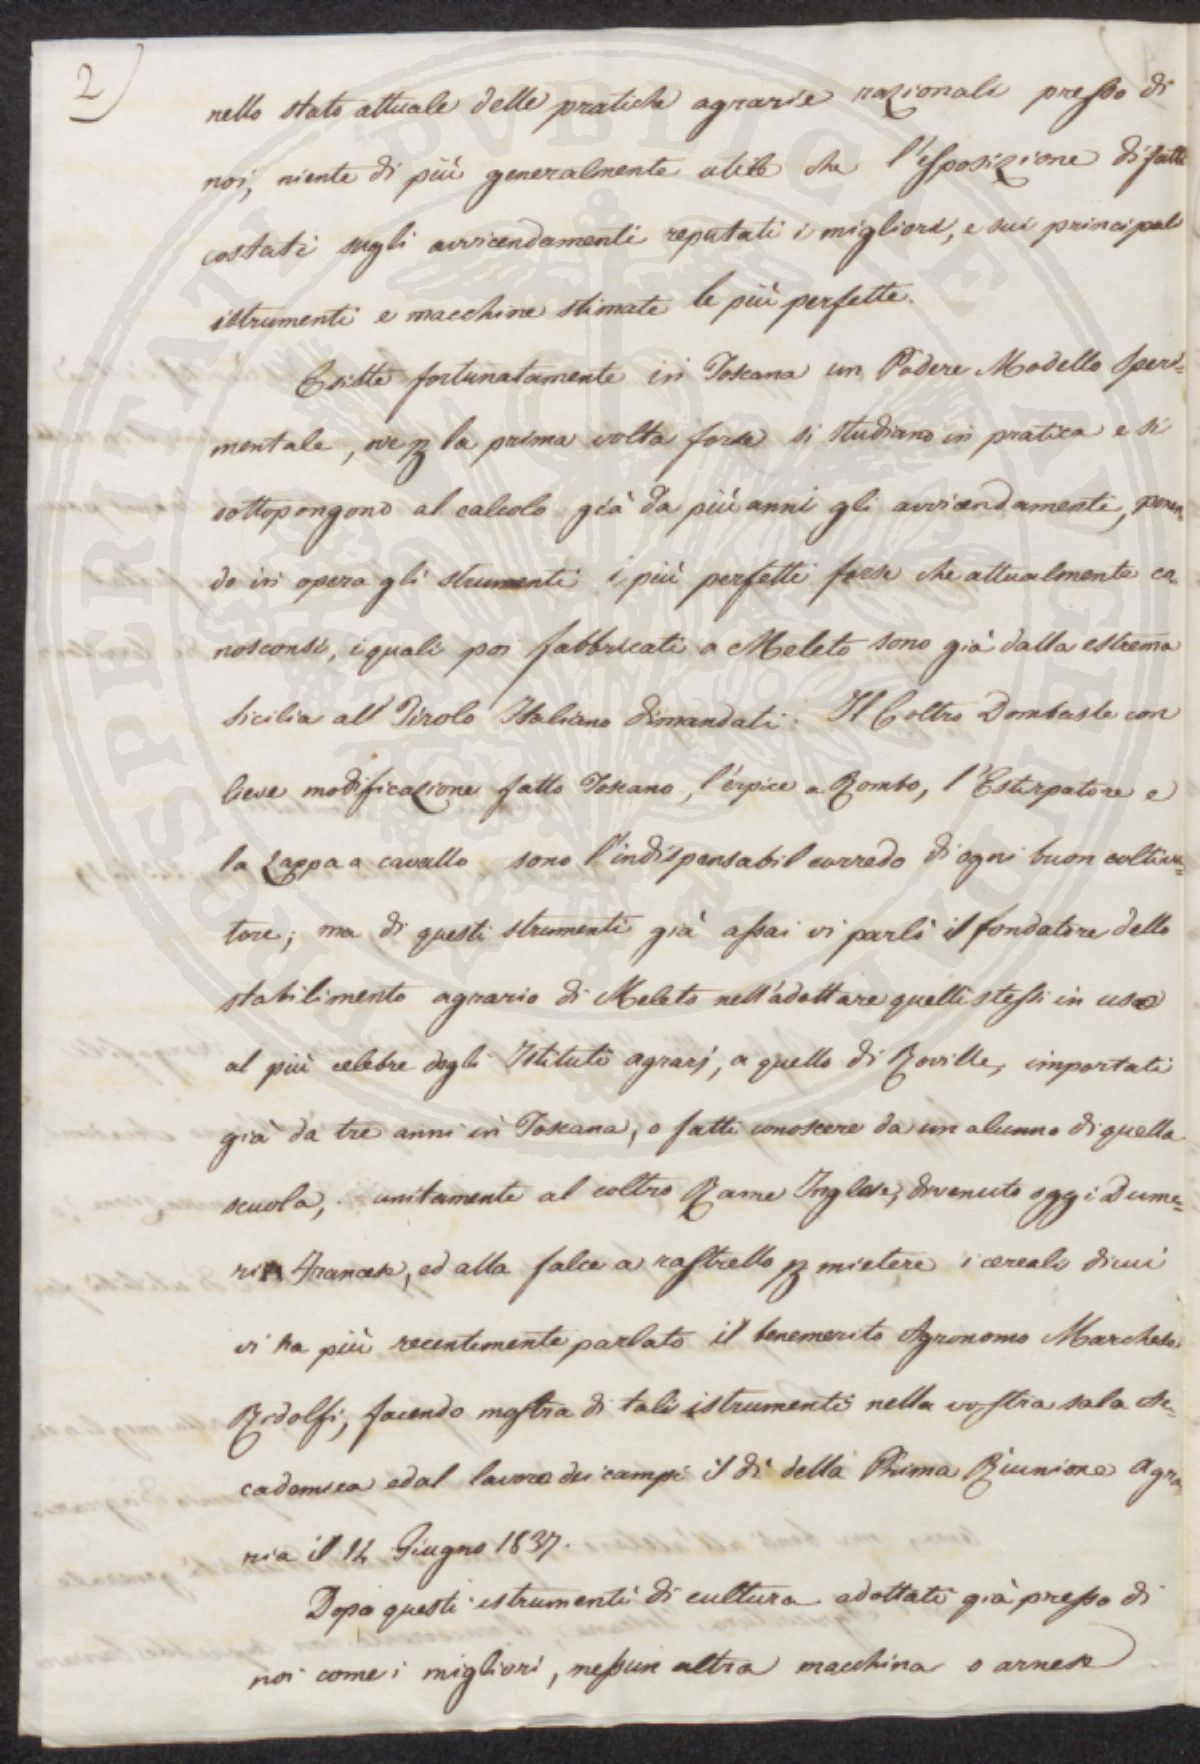 2)
nello stato attuale delle pratiche agrarie razionali presso di
noi, niente di più generalmente utile che l'esposizione di fatti
costati sugli avvicendamenti reputati i migliori, e sui principal
istrumenti e macchine stimate le più perfette.
Esiste fortunatamente in Toscana un Podere Modello Speri=
mentale, ove p la prima volta forse si studiano in pratica e si
sottopongono al calcolo già da più anni gli avvicendamenti, ponen=
do in opera gli strumenti i più perfetti forse che attualmente co=
nosconsi, i quali poi fabbricati a Meleto sono già dalla estrema
Sicilia all' Tirolo Italiano dimandati. Il Coltro Dombasle con
lieve modificazione fatto Toscano, l'érpice a Rombo, l'Estirpatore e
la zappa a cavallo sono l'indispensabil corredo di ogni buon coltiva=
tore; ma di questi strumenti già assai vi parlò il fondatore dello
stabilimento agrario di Meleto nell'adottare quelli stessi in uso
al più celebre degli Istituti agrarj, a quello di Roville, importati
già da tre anni in Toscana, o fatti conoscere da un alunno di quella
scuola, unitamente al coltro Rame Inglese, divenuto oggi Dume=
rin Francese, ed alla falce a rastrello p mietere i cereali di cui
vi ha più recentemente parlato il benemerito Agronomo Marchese
Ridolfi, facendo mostra di tali istrumenti nella vostra sala Ac=
cademica ed al lavoro dei campi il dì della Prima Riunione Agra=
ria il 12 Giugno 1837.
Dopo questi istrumenti di cultura adottati già presso di
noi come i migliori, nessun altra macchina o arnese